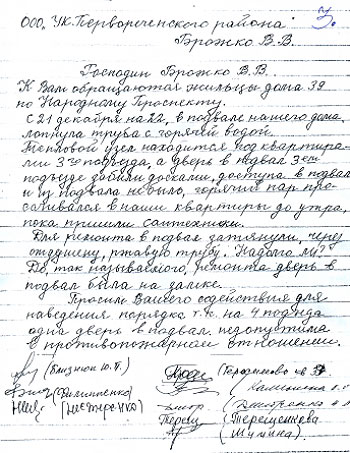 ООО, УК. Первореченского района: 3.
Брожко В. В.
Господин Брожко В. В.
К Вам обращаются жильцы дома 39
по Народному Проспекту.
С 21 декабря на 22, в подвале нашего дома,
лопнула труба с горячей водой.
Тепловой узел находится под квартира-
ми 3го подъезда, а дверь в подвал 3ем
подъезде забили досками, доступа в подвал
и из подвала не было, горячий пар про-
сачивался в наши квартиры до утра,
пока пришли сантехники.
Для ремонта в подвал затянули, через
отдушину, ржавую трубу. Надолго ли?
До, так называемого, ремонта дверь в
подвал была на замке.
Просим Вашего содействия для
наведения порядка т. к. на 4 подъезда
одна дверь в подвал, недопустима
в противопожарном отношении.
(Близнюк Ю. П.)
(Филиппенко)
(Нестеренко)
(Терещенкова
(Мунина).